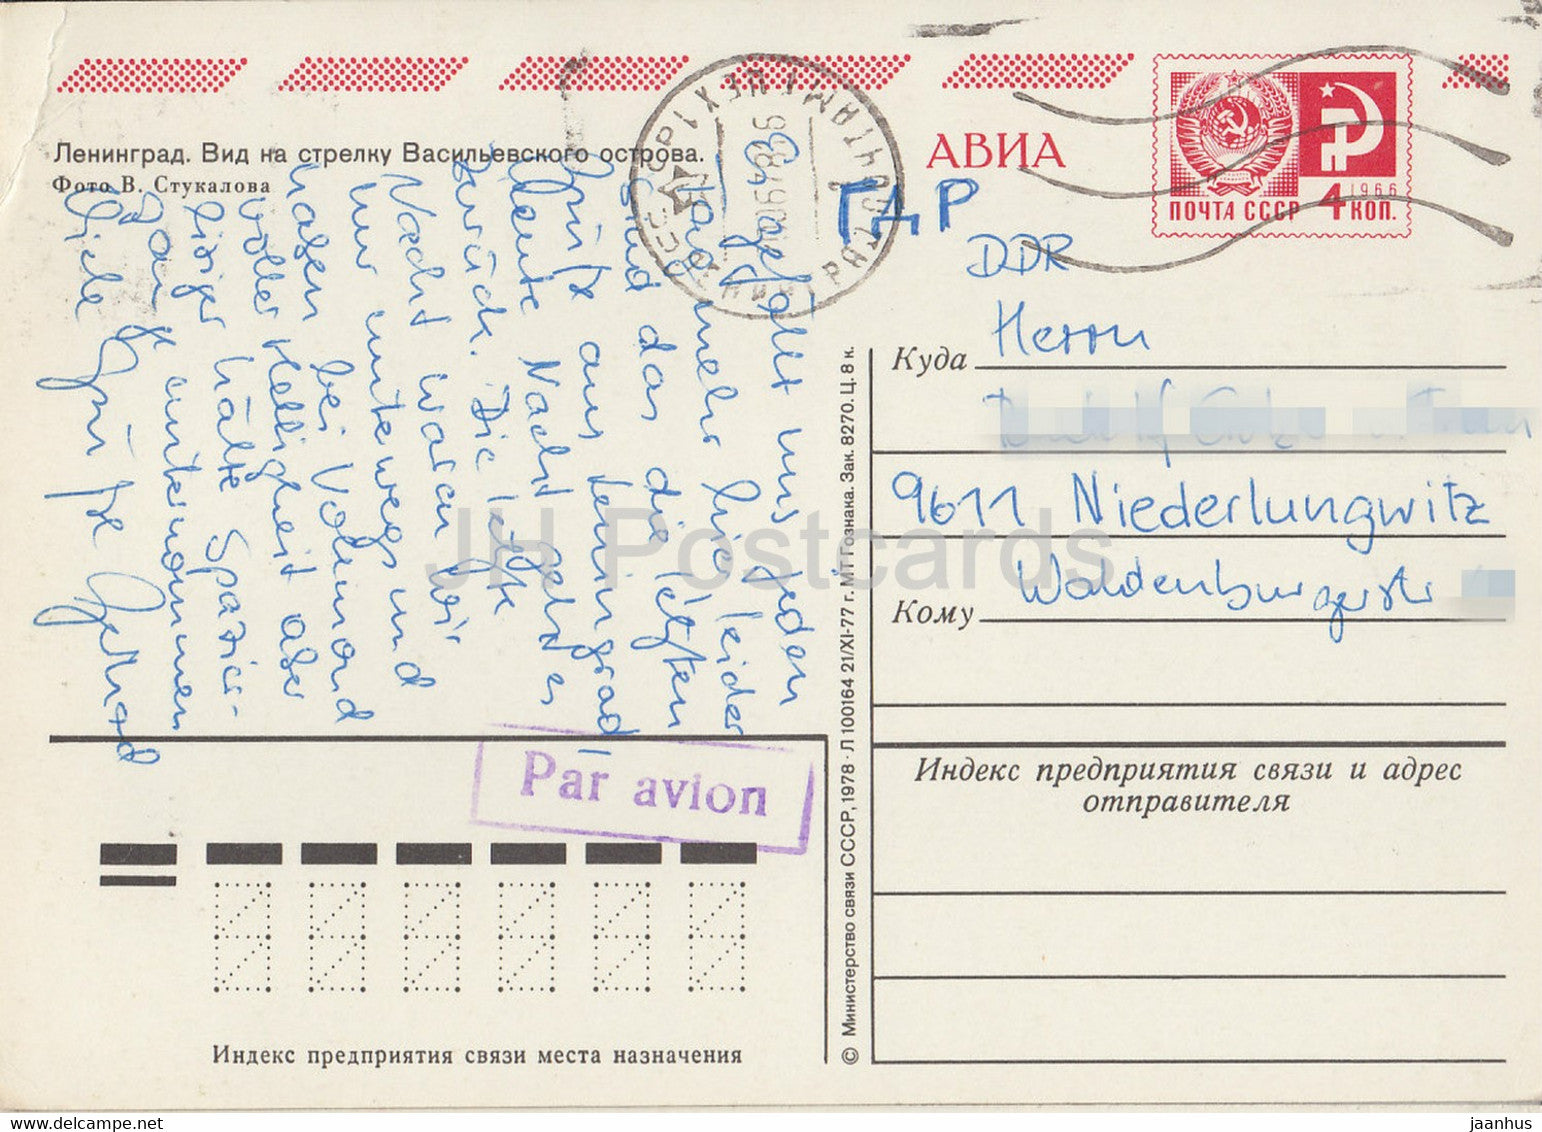 АВИА
1966
ПОЧТА СССР 4 КОП.
Ленинград. Вид на стрелку Васильевского острова.
Фото В. Стукалова
ГДР
DDR
Куда Herrn
9611 Niederlungwitz
Кому Waldenburgerstr
Es gefällt uns jeden
Tag mehr hie leider
sind das die letzten
Grüße aus Leningrad!
Heute Nacht geht es
zurück. Die letzte
Nacht waren wir
nur unterwegs und
haben bei Vollmond
voller Helligkeit aber
eisiger Kälte Spazier-
gänge unternommen
Liebe Grüße Gertrud
Par avion
Индекс предприятия связи и адрес
отправителя
Индекс предприятия связи места назначения
© Министерство связи СССР, 1978 · Л 100164 21/XI-77 г. МТ Гознака. Зак. 8270. Ц. 8 к.
JH Postcards
www.delcampe.net
jaanhus